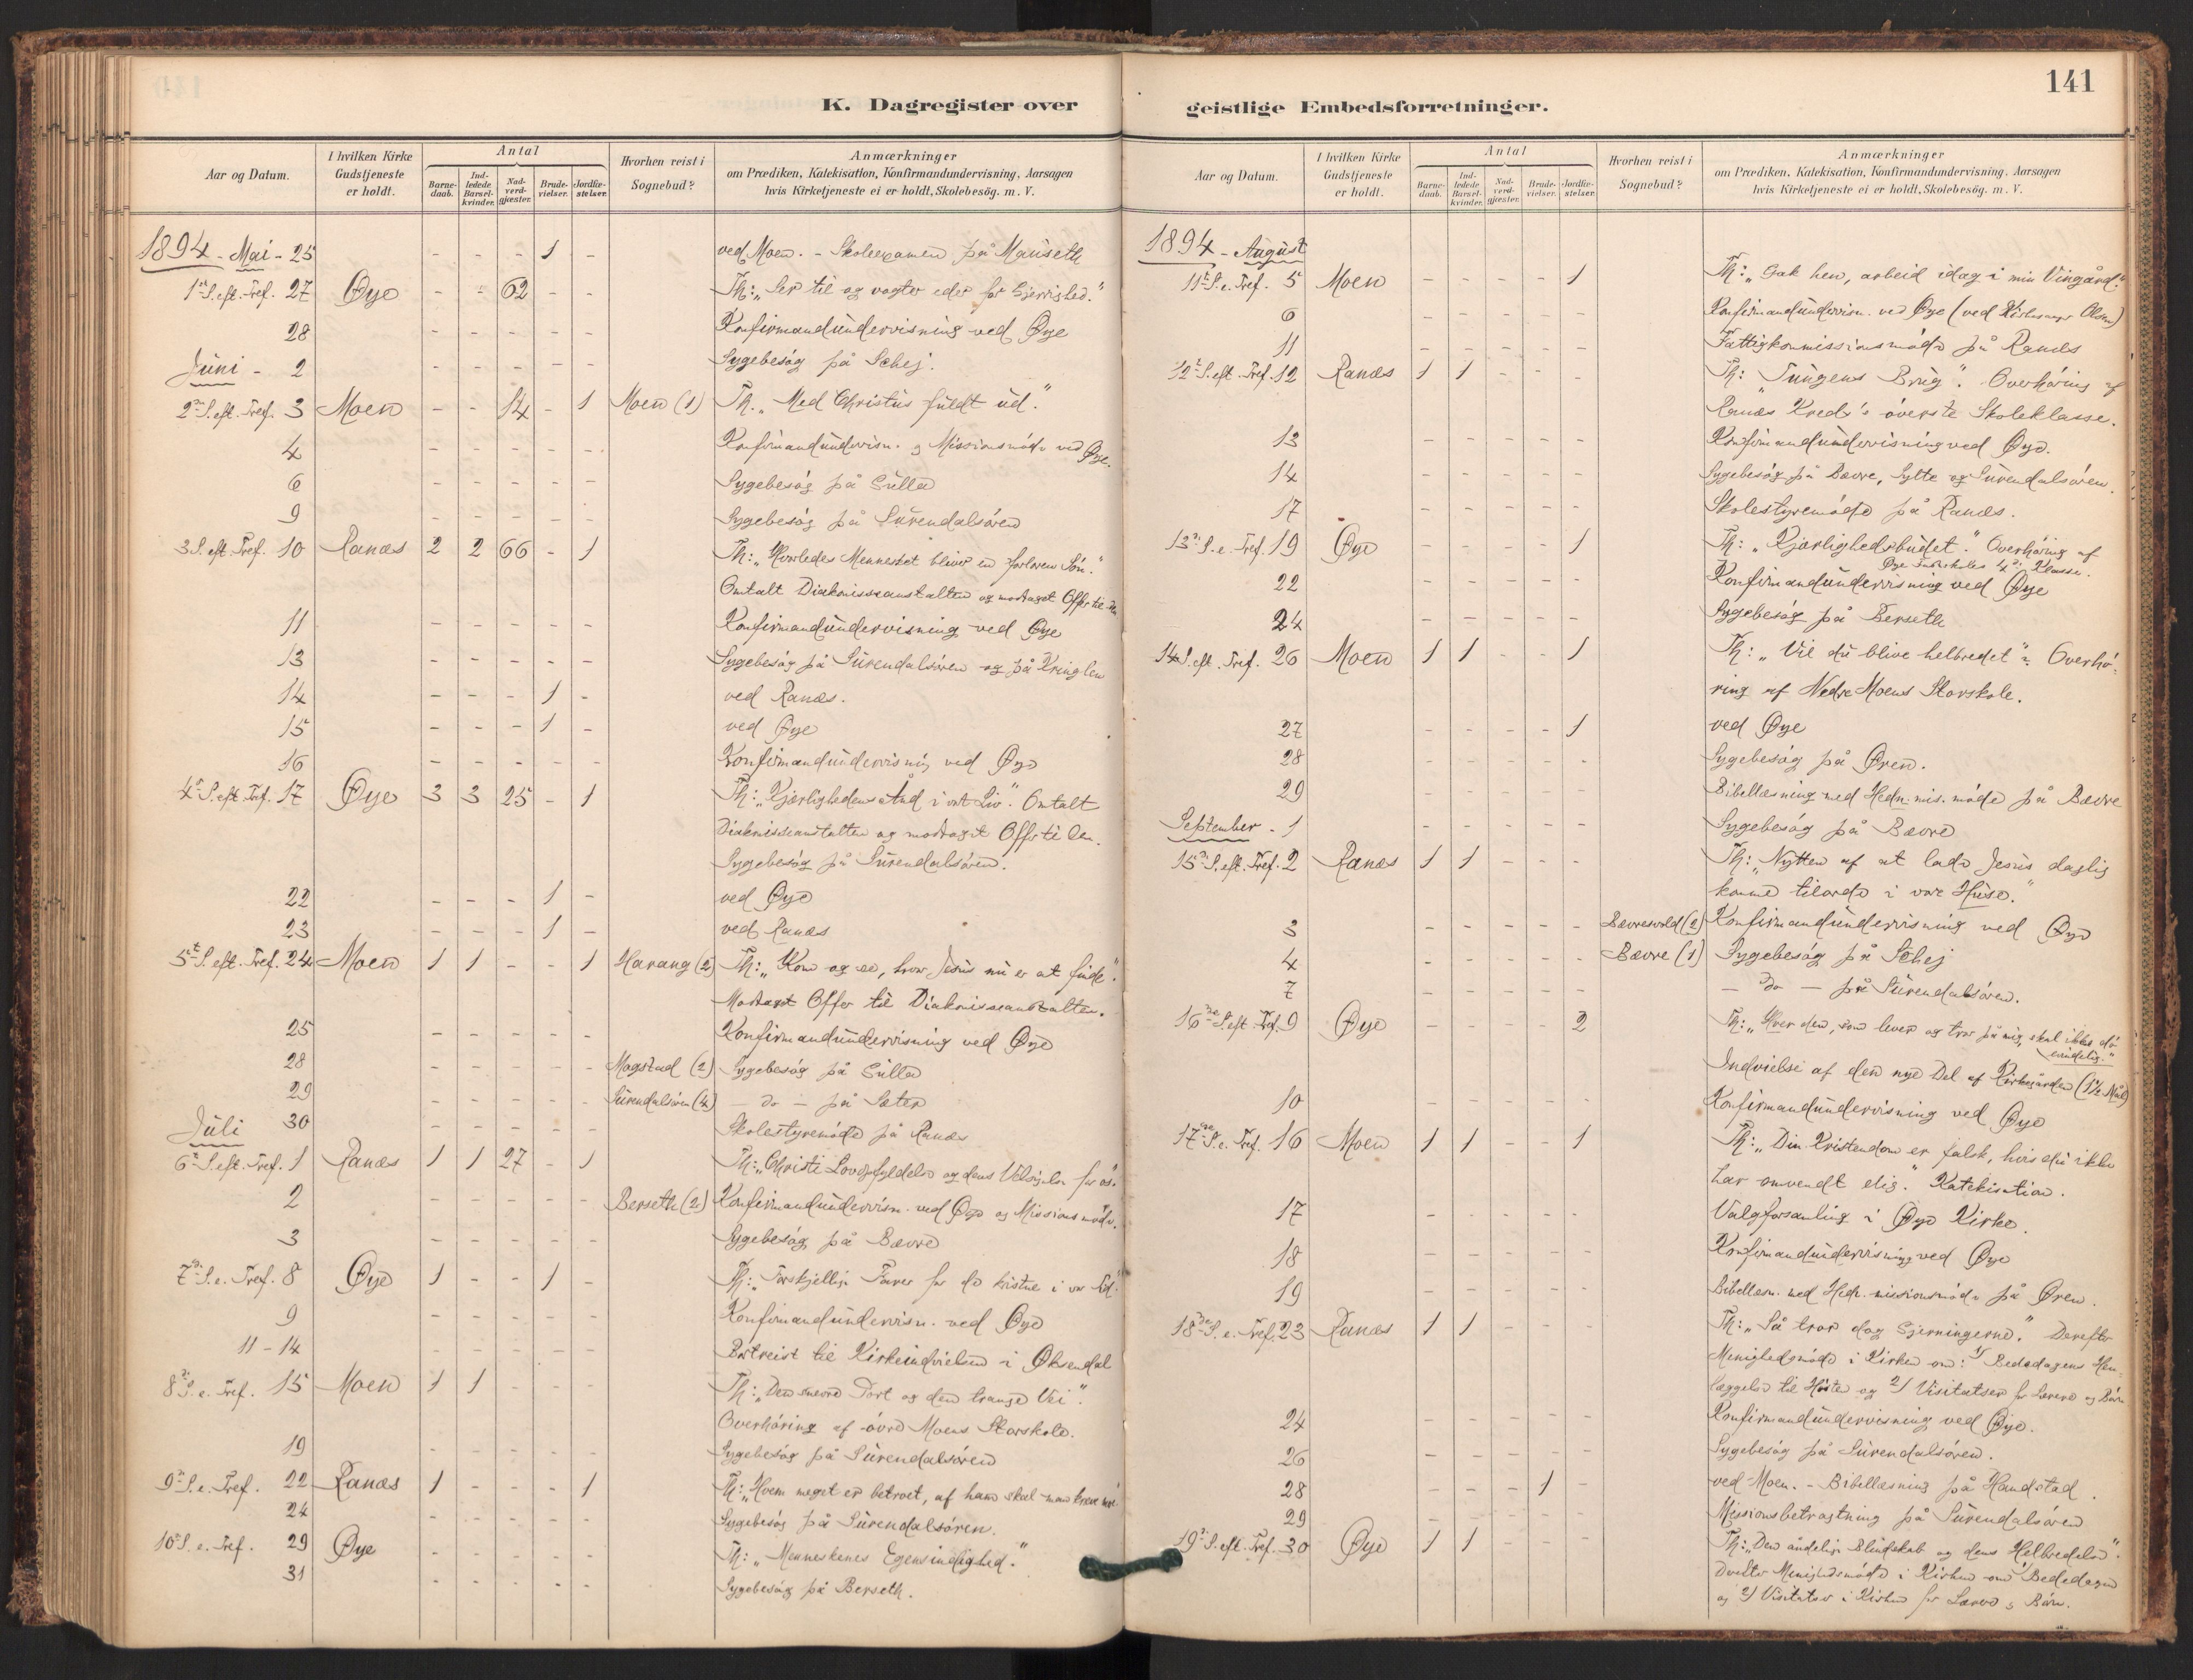 K. Dagregister over
Aar og Datum.
I hvilken Kirke Gudstjeneste er holdt.
Antal
Barne-daab.
Ind-ledede Barsel-kvinder.
Nad-verd-gjæster.
Brude-vielser.
Jordfæ-stelser.
Hvorhen reist i Sognebud?
Anmærkninger
om Prædiken, Katekisation, Konfirmandundervisning, Aarsagen
hvis Kirketjeneste ei er holdt, Skolebesög. m. V.
1894 - Mai - 25 - - - 1 - ved Moen. - Skoleexamen på Mauseth
1ste S. eft. Tref. 27 Øye - - 62 - - Th: „Ser til og vogter eder for Gjerrighed."
28 - - - - - Konfirmandundervisning ved Øye
Juni - 2 - - - - - Sygebesøg på Schej.
2den S. eft. Tref. 3 Moen - - 14 - 1 Moen (1) Th. „Med Christus fuldt ud."
4 - - - - - Konfirmandundervisn. og Missionsmøde ved Øye.
6 - - - - - Sygebesøg på Gulla
9 - - - - - Sygebesøg på Surendalsøren
3 S. eft. Tref. 10 Ranæs 2 2 66 - 1 Th: „Hvorledes Mennesket bliver en forloren Søn."
Omtalt Diakonisseanstalten og modtaget Offer til den
11 - - - - - Konfirmandundervisning ved Øye
13 - - - - - Sygebesøg på Surendalsøren og på Kringlen
14 - - - 1 - ved Ranæs.
15 - - - 1 - ved Øye
16 - - - - - Konfirmandundervisning ved Øye
4de S. eft. Tref. 17 Øye 3 3 25 - 1 Th: „Kjærlighedens Aand i vort Liv". Omtalt
Diakonisseanstalten og modtaget Offer til den.
Sygebesøg på Surendalsøren.
22 - - - 1 - ved Øye
23 - - - 1 - ved Ranæs
5te S. eft. Tref. 24 Moen 1 1 - - 1 Harang (2) Th: „Kom og se, hvor Jesus nu er at finde."
Modtaget Offer til Diakonisseanstalten.
25 - - - - - Konfirmandundervisning ved Øye
28 - - - - - Mogstad (2) Sygebesøg på Gulla
29 - - - - - Surendalsøren (4) - do - på Sæter
30 - - - - - Skolestyremøde på Ranæs
Juli
6te S. eft. Tref. 1 Ranæs 1 1 27 - 1 Th: „Christi Lovopfyldelse og dens Velsignelse for os"
2 - - - - - Berseth (2) Konfirmandundervisn. ved Øye og Missionsmøde.
3 - - - - - Sygebesøg på Bævre
7de S. e. Tref. 8 Øye 1 - - 1 - Th: „Forskjellige Farer for de kristne i vor Tid."
9 - - - - - Konfirmandundervisn. ved Øye
11 - 14 - - - - - Bortreist til Kirkeindvielsen i Øksendal
8de S. e. Tref. 15 Moen 1 1 - - - Th: „Den snevre Port og den trange Vei".
Overhøring af øvre Moens Storskole.
19 - - - - - Sygebesøg på Surendalsøren
9de S. e. Tref. 22 Ranæs 1 - - - 1 Th: „Hvem meget er betroet, af ham skal man kræve
24 - - - - - Sygebesøg på Surendalsøren.
10de S. e. Tref. 29 Øye - - - - - Th: „Menneskenes Egensindighed."
31 - - - - - Sygebesøg på Berseth.
141
geistlige Embedsforretninger.
Aar og Datum.
I hvilken Kirke Gudstjeneste er holdt.
Antal
Barne-daab.
Ind-ledede Barsel-kvinder.
Nad-verd-gjæster.
Brude-vielser.
Jordfæ-stelser.
Hvorhen reist i Sognebud?
Anmærkninger
om Prædiken, Katekisation, Konfirmandundervisning, Aarsagen
hvis Kirketjeneste ei er holdt, Skolebesög. m. V.
1894 - August
11te S. e. Tref. 5 Moen - - - - 1 Th: „Gak hen, arbeid idag i min Vingård."
6 - - - - - Konfirmandundervisn. ved Øye (ved Kirkesanger Olsen)
11 - - - - - Fattigkommissionsmøde på Ranæs
12te S. eft. Tref. 12 Ranæs 1 1 - - - Th: „Tungens Brug". Overhøring af
Ranæs Kreds's øverste Skoleklasse.
13 - - - - - Konfirmandundervisning ved Øye.
14 - - - - - Sygebesøg på Bævre, Sylte og Surendalsøren.
17 - - - - - Skolestyremøde på Ranæs.
13de S. e. Tref. 19 Øye - - - - 1 Th: „Kjærlighedsbudet." Overhøring af
Øye Folkeskoles 4de Klasse.
22 - - - - - Konfirmandundervisning ved Øye
24 - - - - - Sygebesøg på Berseth
14 S. eft. Tref. 26 Moen 1 1 - - 1 Th: „Vil du blive helbredet"? Overhø-
ring af Nedre Moens Storskole.
27 - - - - 1 ved Øye
28 - - - - - Sygebesøg på Øren.
29 - - - - - Bibellæsning med Hedn. mis. møde på Bævre
September - 1 - - - - - Sygebesøg på Bævre
15de S. eft. Tref. 2 Ranæs 1 1 - - - Th: „Nytten af at lade Jesus daglig
komme tilorde i vore Huse."
3 - - - - - Bævrevold (2) Konfirmandundervisning ved Øye
4 - - - - - Bævre (1) Sygebesøg på Schej
7 - - - - - - do - på Surendalsøren.
16de S. eft. Tref. 9 Øye - - - - 2 Th: „Hver den, som lever og tror på mig, skal ikke dø
evindelig."
Indvielse af den nye Del af Kirkegården (1½ Mål)
10 - - - - - Konfirmandundervisning ved Øye
17de S. e. Tref. 16 Moen 1 1 - - 1 Th: „Din Kristendom er falsk, hvis du ikke
har omvendt dig." Katekisation.
17 - - - - - Valgforsamling i Øye Kirke.
18 - - - - - Konfirmandundervisning ved Øye
19 - - - - - Bibellæsn. med Hedn. missionsmøde på Øren.
18de S. e. Tref. 23 Ranæs 1 1 - - - Th: „Så tror dog Gjerningerne." Derefter
Menighedsmøde i Kirken om: 1) Bededagens Hen-
læggelse til Høsten og 2) Visitatser for Lærere og Børn
24 - - - - - Konfirmandundervisning ved Øye.
26 - - - - - Sygebesøg på Surendalsøren.
28 - - - 1 - ved Moen. - Bibellæsning på Handstad.
29 - - - - - Missionsbetragtning på Surendalsøren
19de S. eft. Tref. 30 Øye 1 1 - - - Th: „Den åndelige Blindskab og dens Helbredelse".
Derefter Menighedsmøde i Kirken om 1) Bededagen
og 2) Visitatser i Kirken for Lærere og Børn.